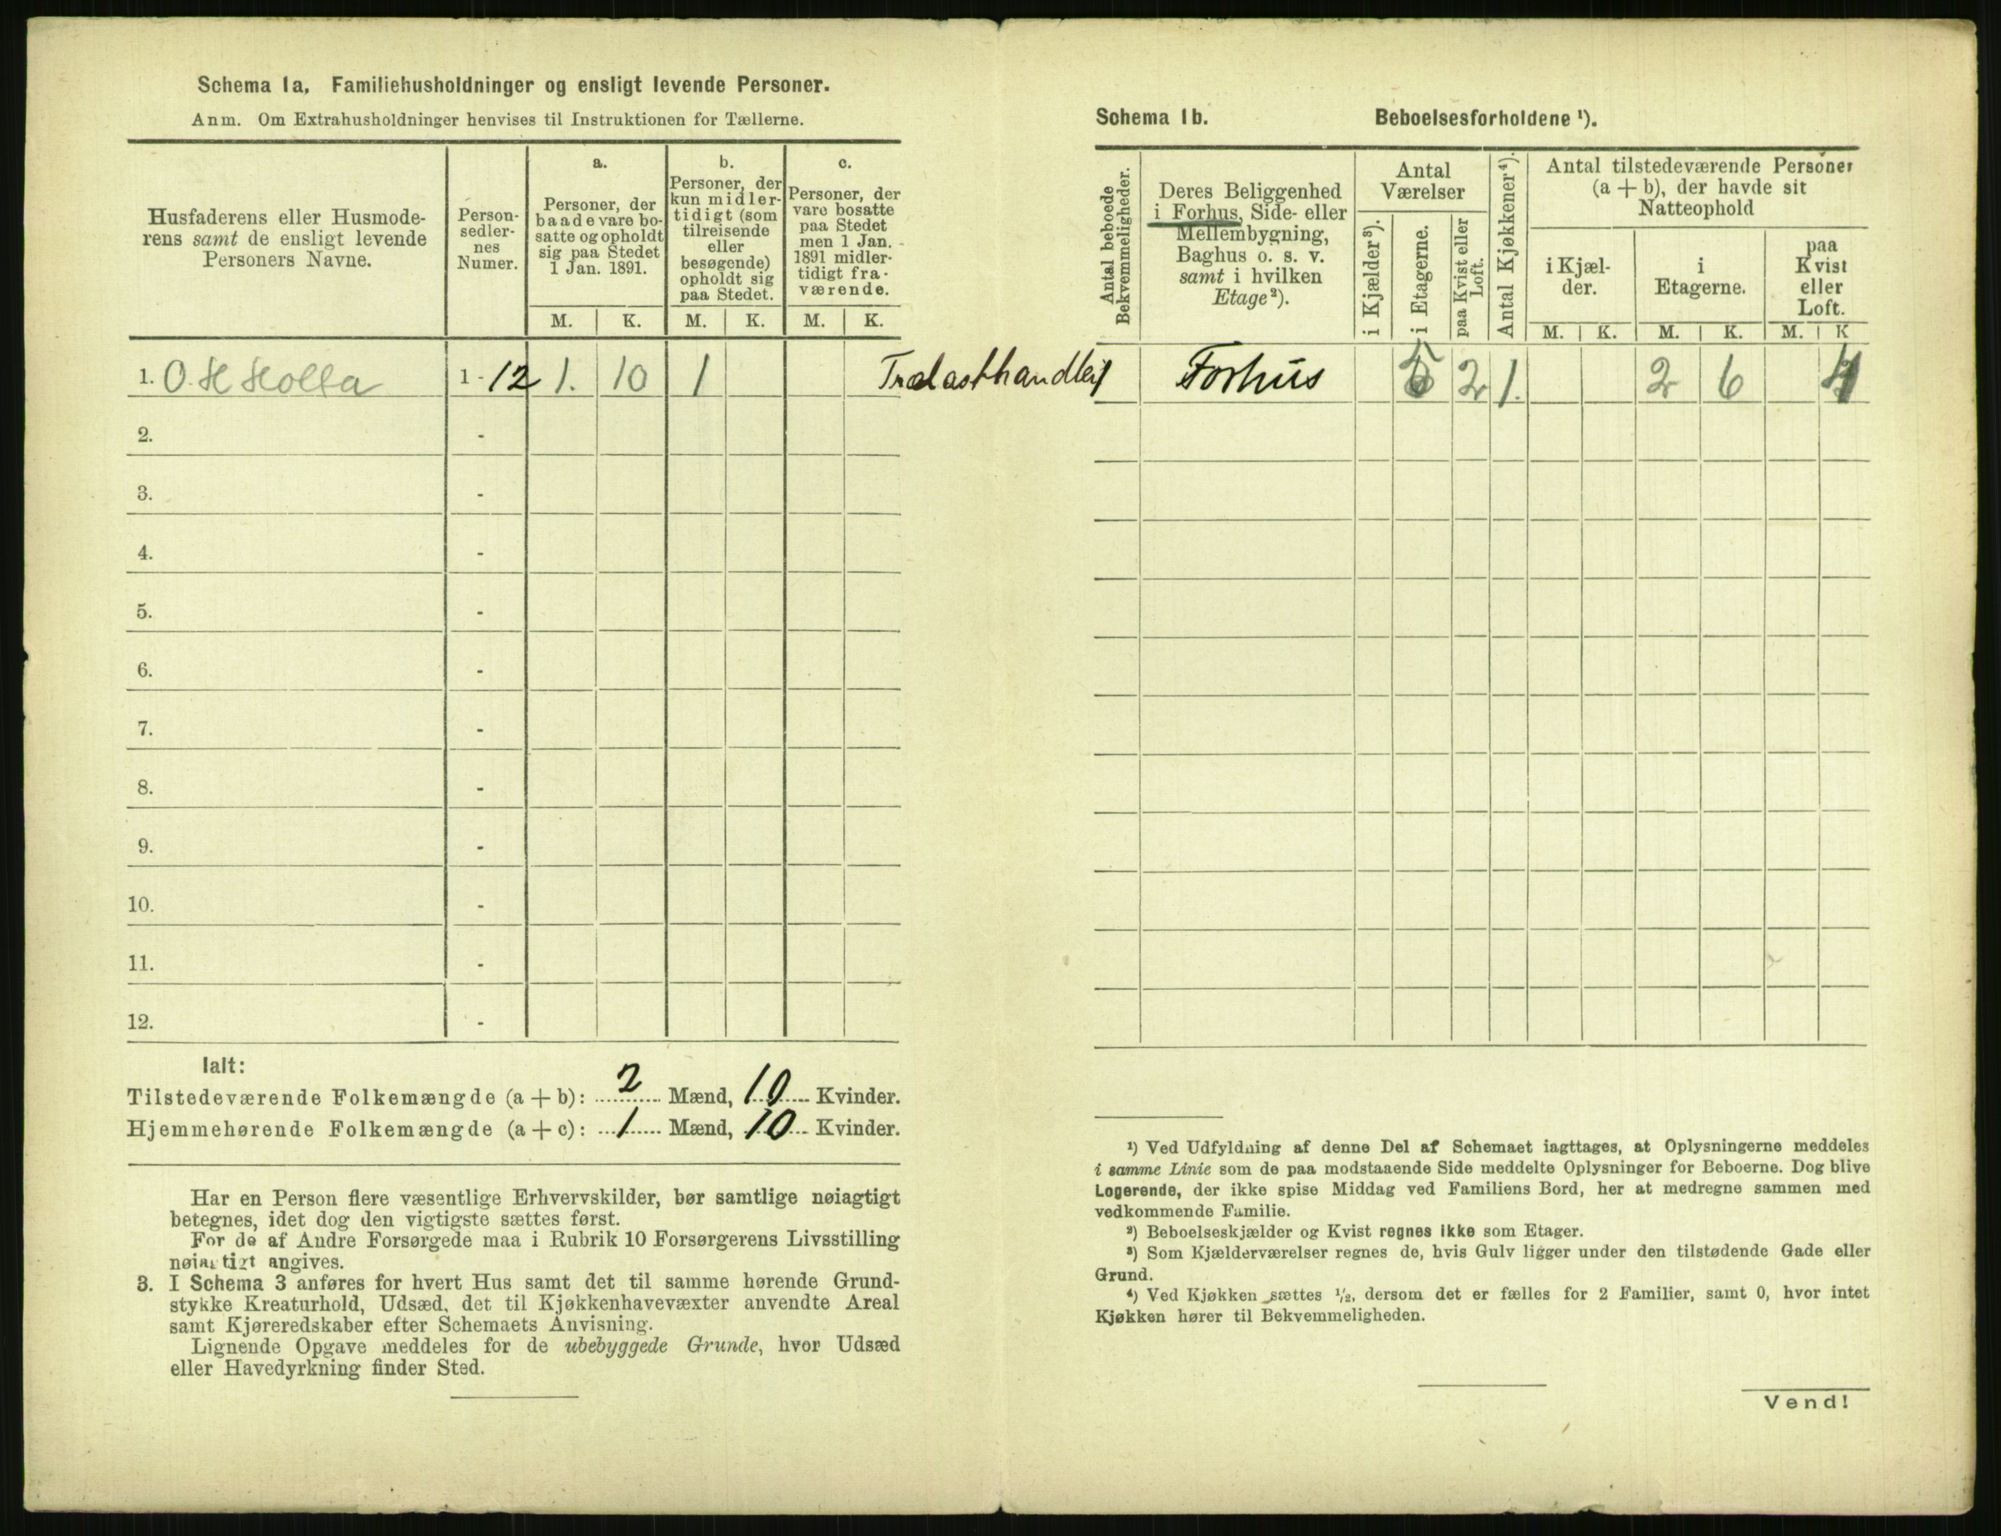 Schema 1a. Familiehusholdninger og ensligt levende Personer.
Anm. Om Extrahusholdninger henvises til Instruktionen for Tællerne.
Husfaderens eller Husmode-
rens samt de ensligt levende
Personers Navne.
Person-
sedler-
nes
Numer.
a.
Personer, der
baade vare bo-
satte og opholdt
sig paa Stedet
1 Jan. 1891.
M. K.
b.
Personer, der
kun midler-
tidigt (som
tilreisende
eller
besøgende)
opholdt sig
paa Stedet.
M. K.
c.
Personer, der
vare bosatte
paa Stedet
men 1 Jan.
1891 midler-
tidigt fra-
værende.
M. K.
1. O. H Holta 1 - 12 1. 10 1 Trælasthandler
2. -
3. -
4. -
5. -
6. -
7. -
8. -
9. -
10. -
11. -
12. -
Ialt:
Tilstedeværende Folkemængde (a + b): 2 Mænd, 10 Kvinder.
Hjemmehørende Folkemængde (a + c): 1 Mænd, 10 Kvinder.
Har en Person flere væsentlige Erhvervskilder, bør samtlige nøiagtigt
betegnes, idet dog den vigtigste sættes først.
For de af Andre Forsørgede maa i Rubrik 10 Forsørgerens Livsstilling
nøiagtigt angives.
3. I Schema 3 anføres for hvert Hus samt det til samme hørende Grund-
stykke Kreaturhold, Udsæd, det til Kjøkkenhavevæxter anvendte Areal
samt Kjøreredskaber efter Schemaets Anvisning.
Lignende Opgave meddeles for de ubebyggede Grunde, hvor Udsæd
eller Havedyrkning finder Sted.
Schema 1b. Beboelsesforholdene ¹).
Antal beboede
Bekvemmeligheder.
Deres Beliggenhed
i Forhus, Side- eller
Mellembygning,
Baghus o. s. v.
samt i hvilken
Etage ²).
Antal
Værelser
i Kjælder ³).
i Etagerne.
paa Kvist eller
Loft.
Antal Kjøkkener ⁴).
Antal tilstedeværende Personer
(a + b), der havde sit
Natteophold
i Kjæl-
der.
M. K.
i
Etagerne.
M. K.
paa
Kvist
eller
Loft.
M. K
1 Forhus 5 2 1. 2 6 4
¹) Ved Udfyldning af denne Del af Schemaet iagttages, at Oplysningerne meddeles
i samme Linie som de paa modstaaende Side meddelte Oplysninger for Beboerne. Dog blive
Logerende, der ikke spise Middag ved Familiens Bord, her at medregne sammen med
vedkommende Familie.
²) Beboelseskjælder og Kvist regnes ikke som Etager.
³) Som Kjælderværelser regnes de, hvis Gulv ligger under den tilstødende Gade eller
Grund.
⁴) Ved Kjøkken sættes ½, dersom det er fælles for 2 Familier, samt 0, hvor intet
Kjøkken hører til Bekvemmeligheden.
Vend!